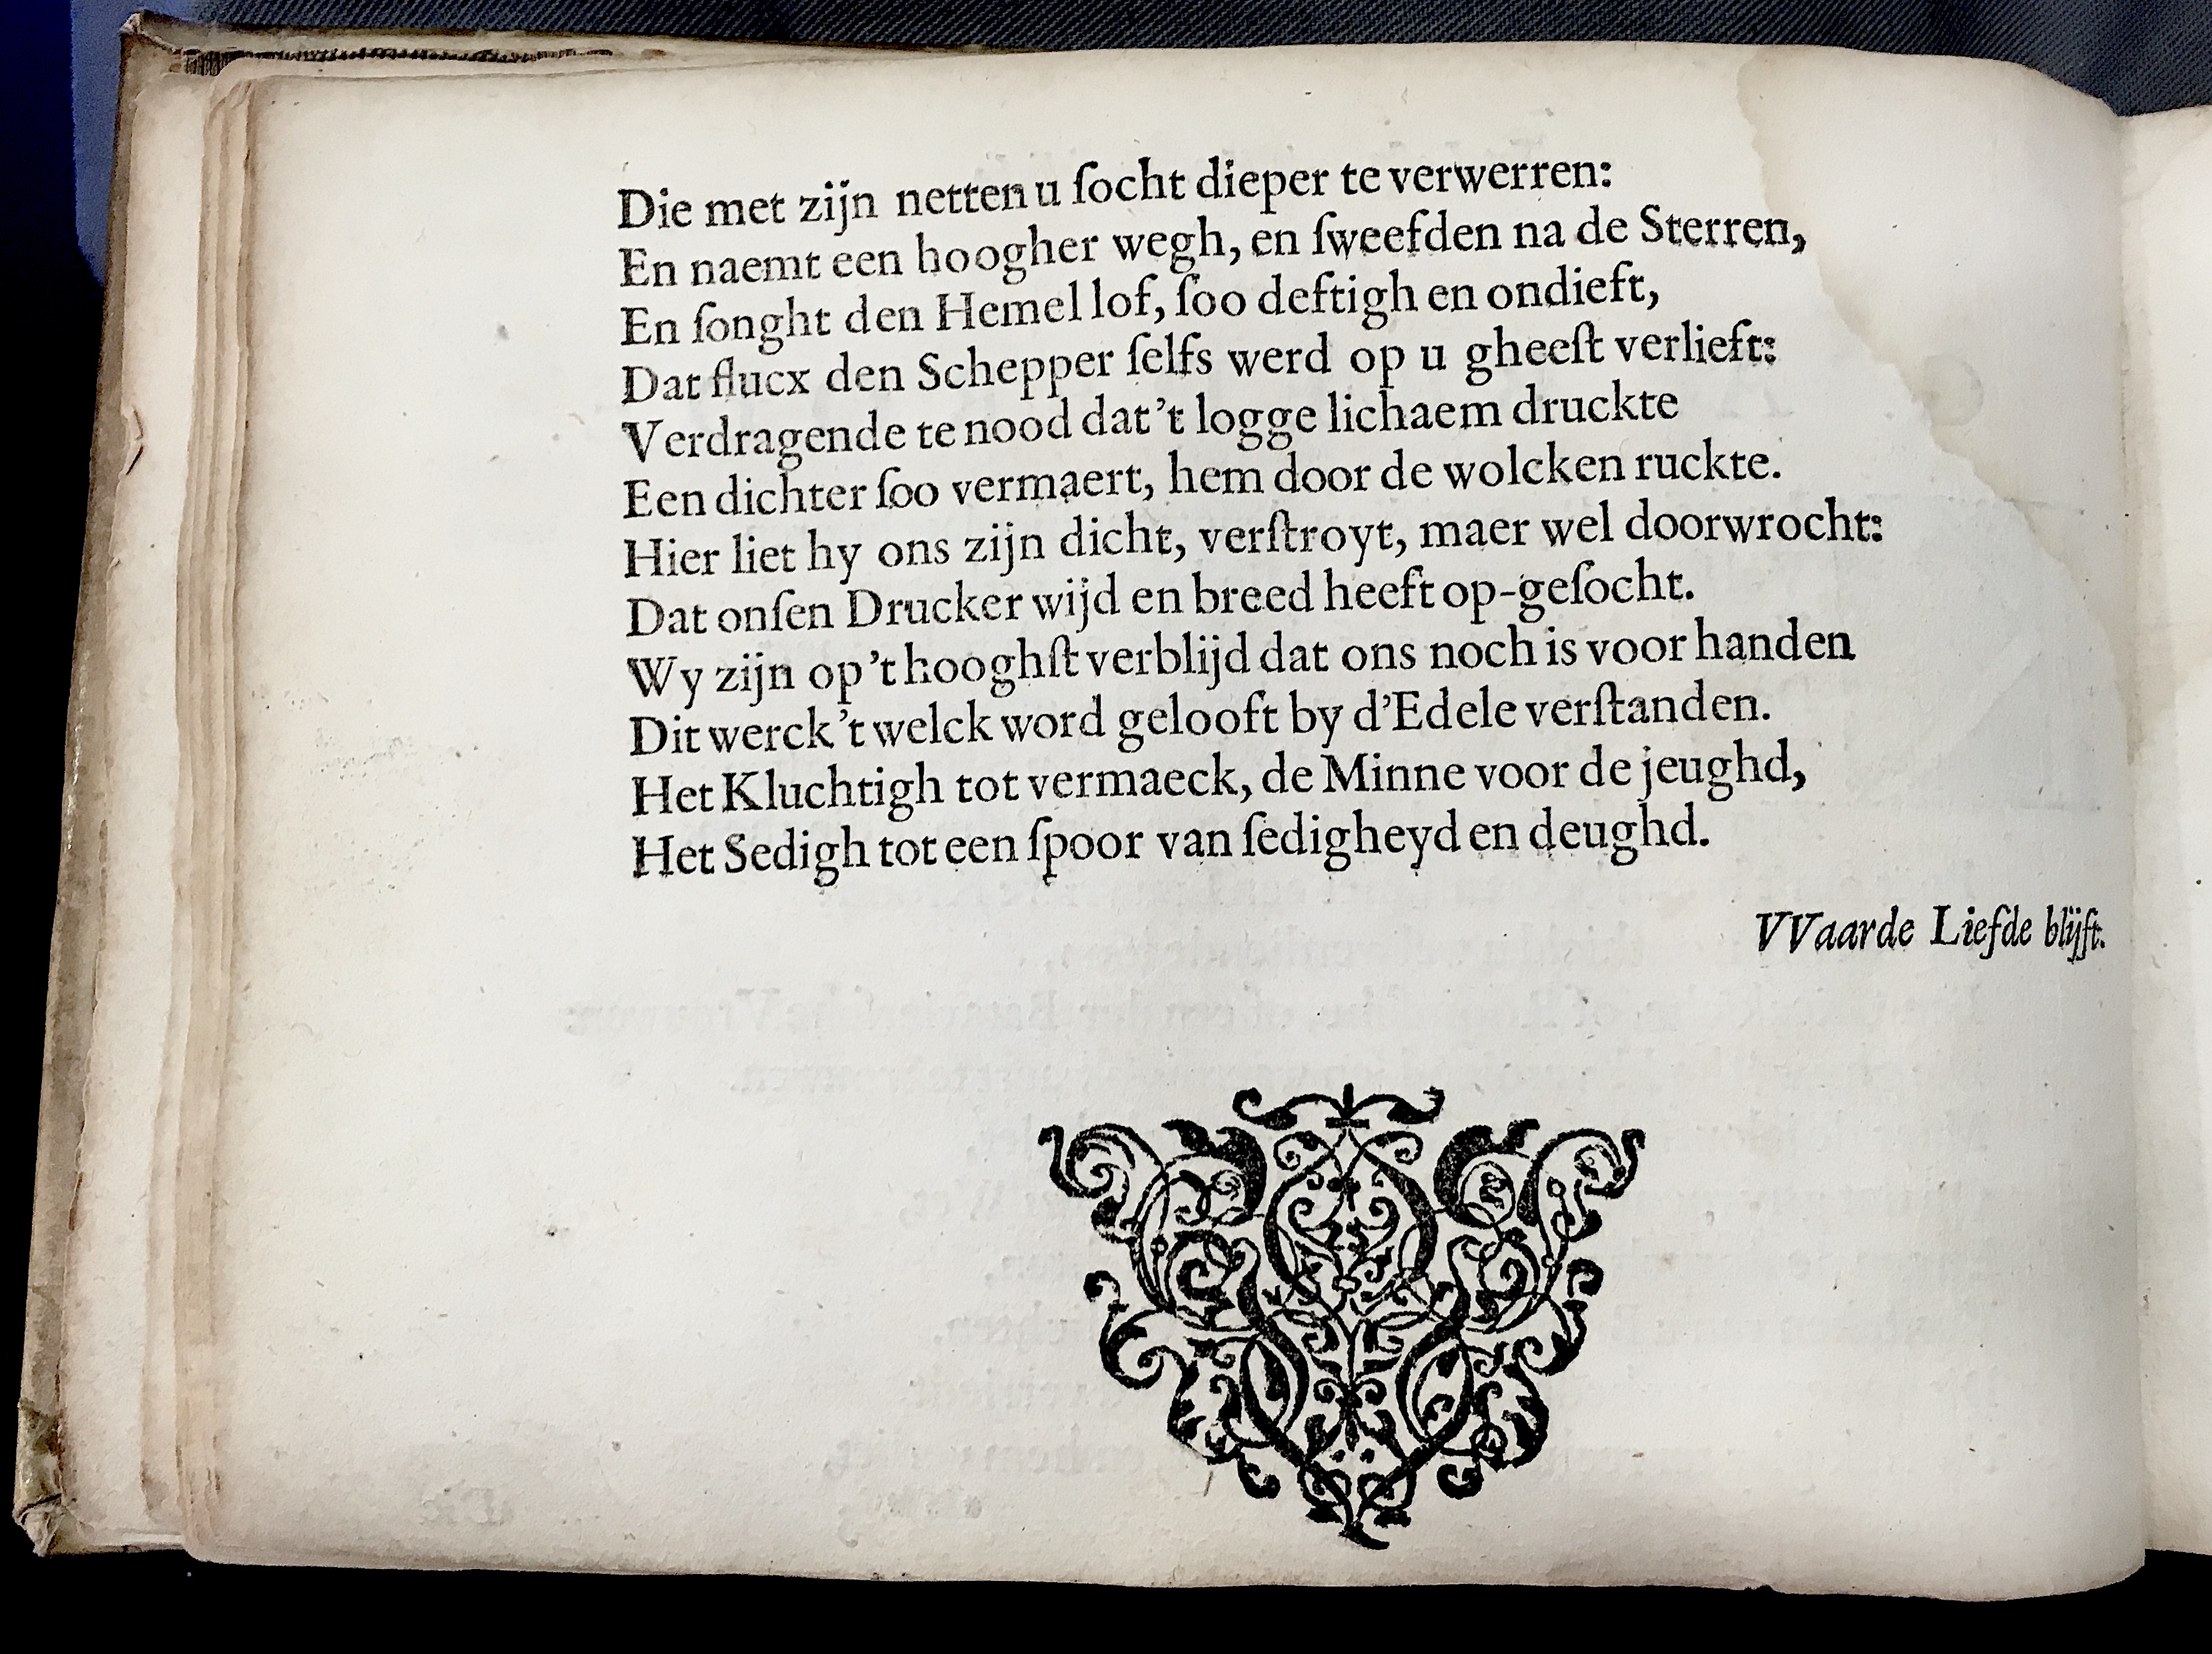 Die met zijn netten u ſocht dieper te verwerren:
En naemt een hoogher wegh, en ſweefden na de Sterren,
En ſonght den Hemel lof, ſoo deftigh en ondieft,
Dat flucx den Schepper ſelfs werd op u gheeſt verlieft:
Verdragende te nood dat 't logge lichaem druckte
Een dichter ſoo vermaert, hem door de wolcken ruckte.
Hier liet hy ons zijn dicht, verſtroyt, maer wel doorwrocht:
Dat onſen Drucker wijd en breed heeft op-geſocht.
Wy zijn op 't hooghſt verblijd dat ons noch is voor handen
Dit werck 't welck word gelooft by d'Edele verſtanden.
Het Kluchtigh tot vermaeck, de Minne voor de jeughd,
Het Sedigh tot een ſpoor van ſedigheyd en deughd.
VVaarde Liefde blijft.